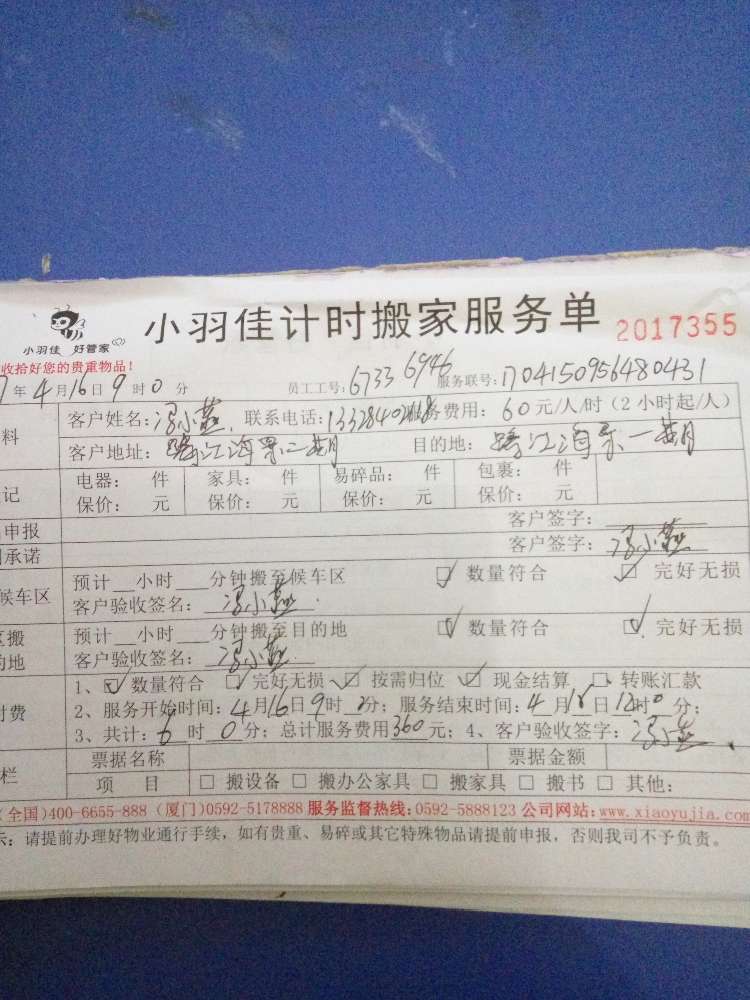 小羽佳计时搬家服务单 2017355
小羽佳 好管家
收拾好您的贵重物品!
7年4月16日9时0分 员工工号:6733 6946 服务联号:1704150956480431
料 客户姓名:冯小燕 联系电话: 费用:60元/人/时(2小时起/人)
客户地址:鹭江海景二期 目的地:鹭江海景一期
记 电器: 件 家具: 件 易碎品: 件 包裹: 件
保价: 元 保价: 元 保价: 元 保价: 元
申报 客户签字:
承诺 客户签字:冯小燕
候车区 预计__小时___分钟搬至候车区 ☑ 数量符合 ☑ 完好无损
客户验收签名:冯小燕
搬 预计__小时___分钟搬至目的地 ☑ 数量符合 ☑ 完好无损
的地 客户验收签名:冯小燕
1、☑ 数量符合 ☑ 完好无损 ☑ 按需归位 ☑ 现金结算 □ 转账汇款
付费 2、服务开始时间:4月16日9时0分;服务结束时间:4月16日12时0分;
3、共计:6时0分;总计服务费用360元;4、客户验收签字:冯小燕
栏 票据名称 票据金额
项 目 □ 搬设备 □ 搬办公家具 □ 搬家具 □ 搬书 □ 其他:
(全国)400-6655-888 (厦门)0592-5178888 服务监督热线:0592-5888123 公司网站:www.xiaoyujia.com
示:请提前办理好物业通行手续,如有贵重、易碎或其它特殊物品请提前申报,否则我司不予负责。